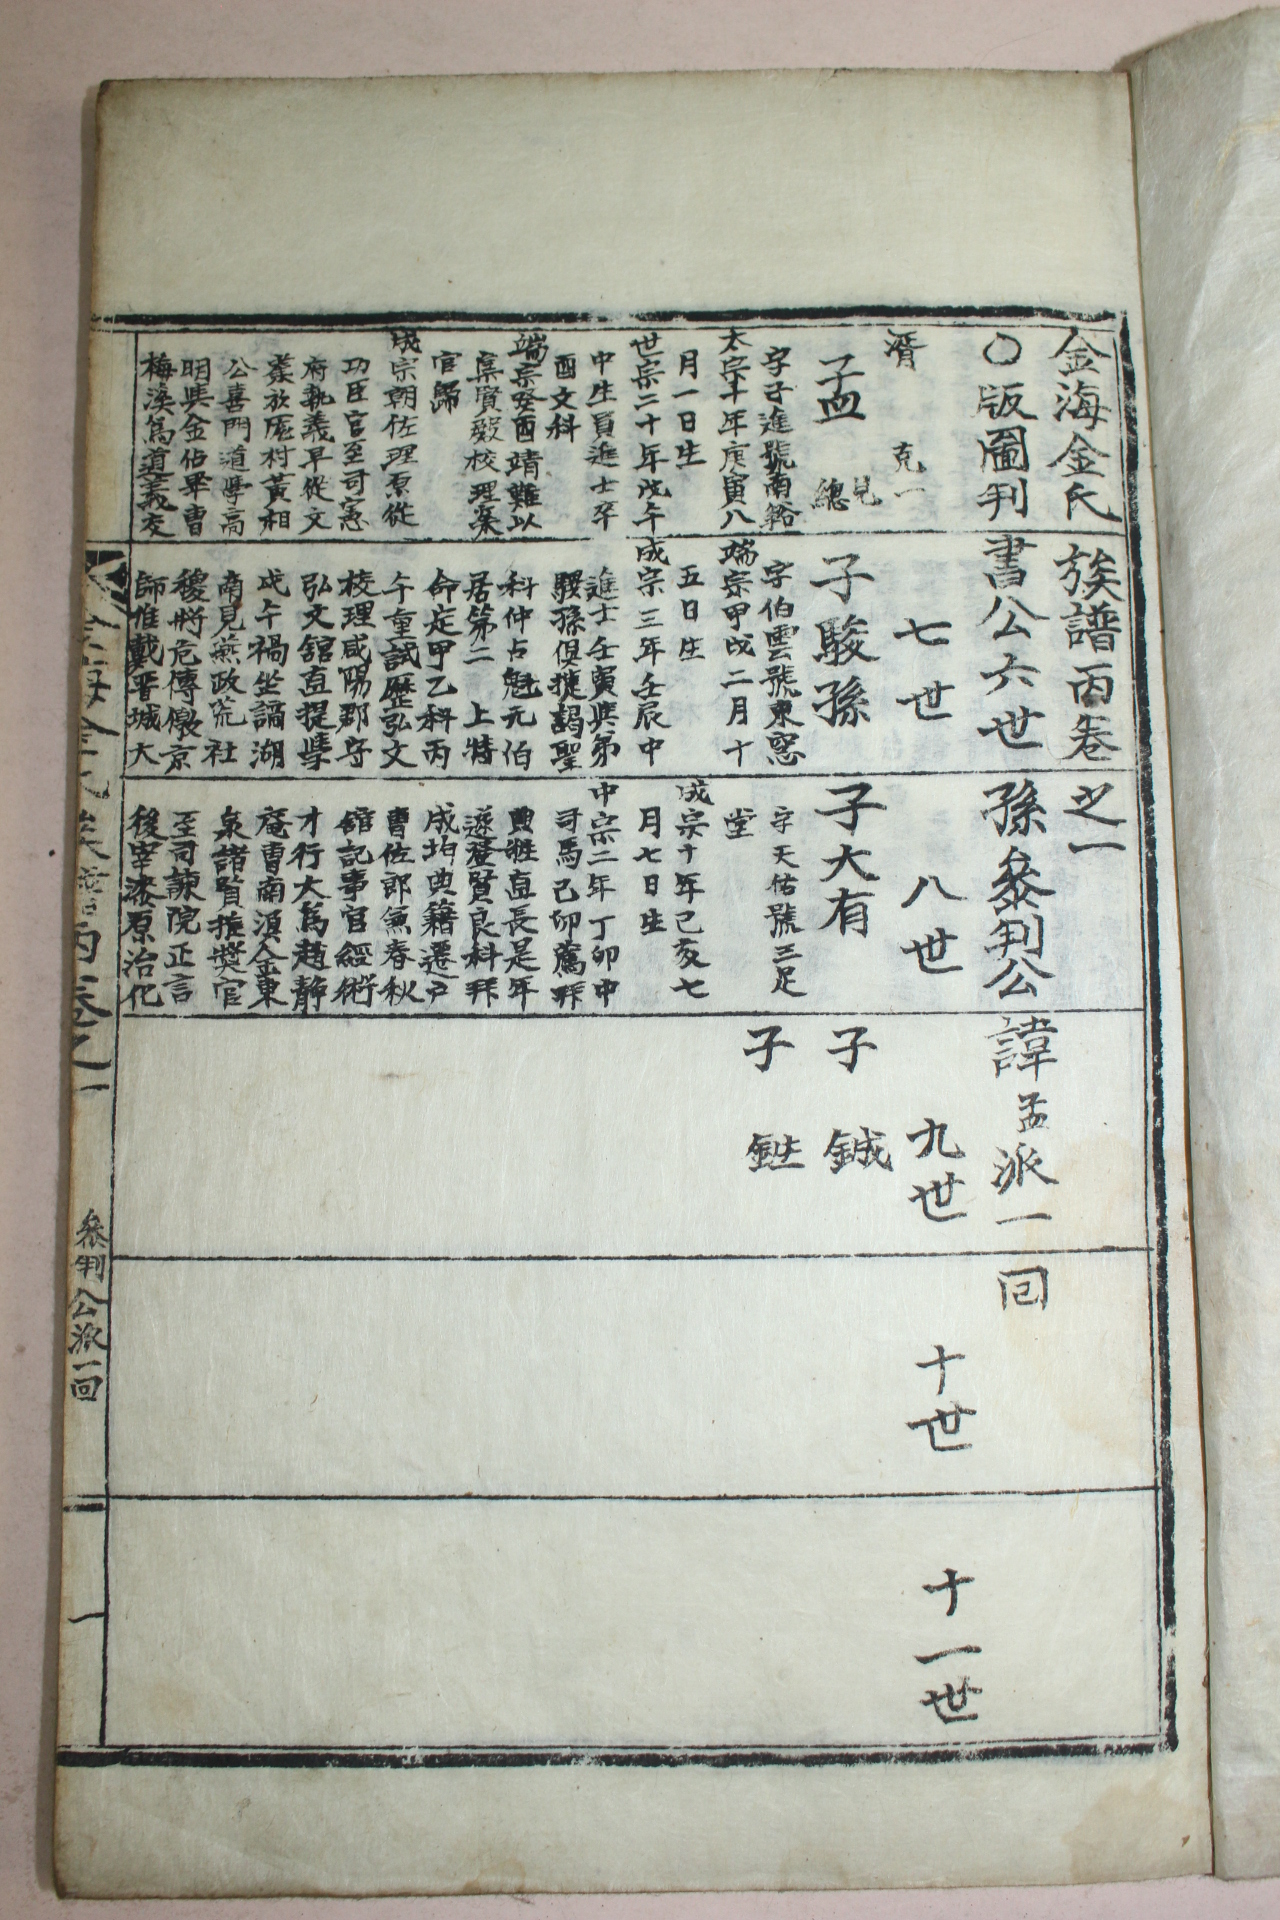 金海金氏族譜丙卷之一
〇版圖判書公六世孫叅判公諱孟派一回
湑 克一
七世
八世
九世
十世
十一世
孟 見總
字子進號南谿
太宗十年庚寅八
月一日生
世宗二十年戊午
中生員進士辛
酉文科
端宗癸酉靖難以
集賢殿校理棄
官歸
成宗朝佐理原從
功臣官至司憲
府執義早從文
公喜門道學高
明與金佔畢曹
梅溪爲道義交
子駿孫
字伯雲號東窓
端宗甲戌二月十
五日生
成宗三年壬辰中
進士壬寅與弟
馹孫俱捷謁聖
科仲占魁元伯
居第二 上特
命定甲乙科丙
午重試歷弘文
校理咸陽郡守
弘文舘直提學
戊午禍坐謫湖
南見燕政荒社
稷將危傳檄京
師推戴晋城大
子大有
字天佑號三足
堂
成宗十年己亥七
月七日生
中宗二年丁卯中
司馬己卯薦拜
典牲直長是年
遂登賢良科拜
成均典籍遷戶
曹佐郎兼春秋
舘記事官經術
才行大爲趙靜
庵曺南溟金東
泉諸賢推奬官
至司諫院正言
後宰漆原治化
子 鋮
子
金海金氏族譜丙卷之一
叅判公派一回
一